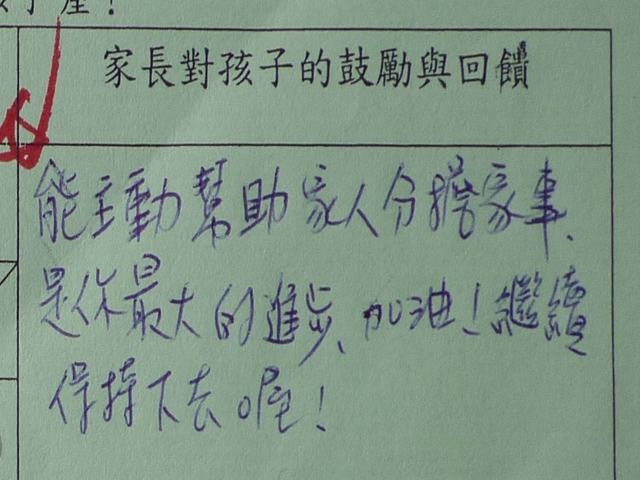 產！
家長對孩子的鼓勵與回饋
能主動幫助家人分擔家事、
是你最大的進步、加油！繼續
保持下去喔！